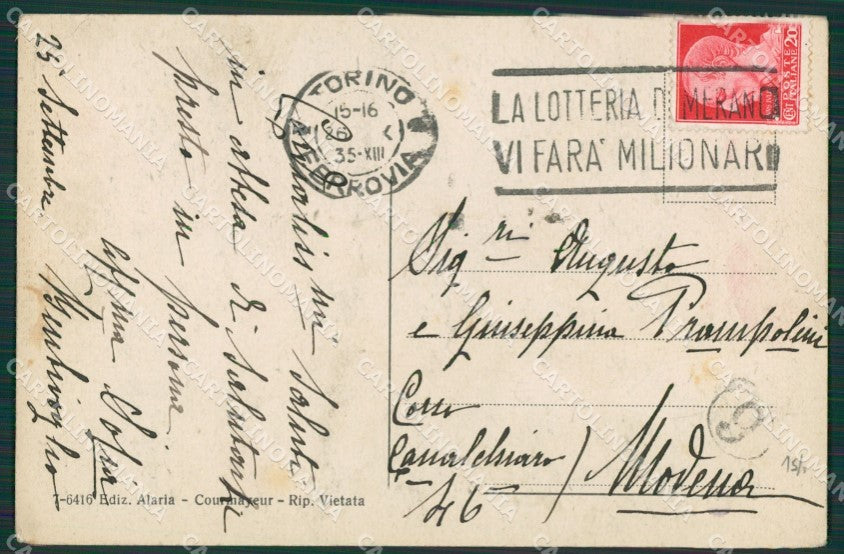 25 Settembre
Cordialissimi saluti
in attesa di salutarvi
presto in persona
Sofia
Bentivoglio
TORINO
15-16
26
35-XIII
FERROVIA
LA LOTTERIA DI MERANO
VI FARA' MILIONARI
POSTE
ITALIANE
CENT 20
Sig.ri Augusto
e Giuseppina Prampolini
Corso
Canalchiaro
46
Modena
9
7-6416 Ediz. Alaria - Courmayeur - Rip. Vietata
CARTOLINOMANIA